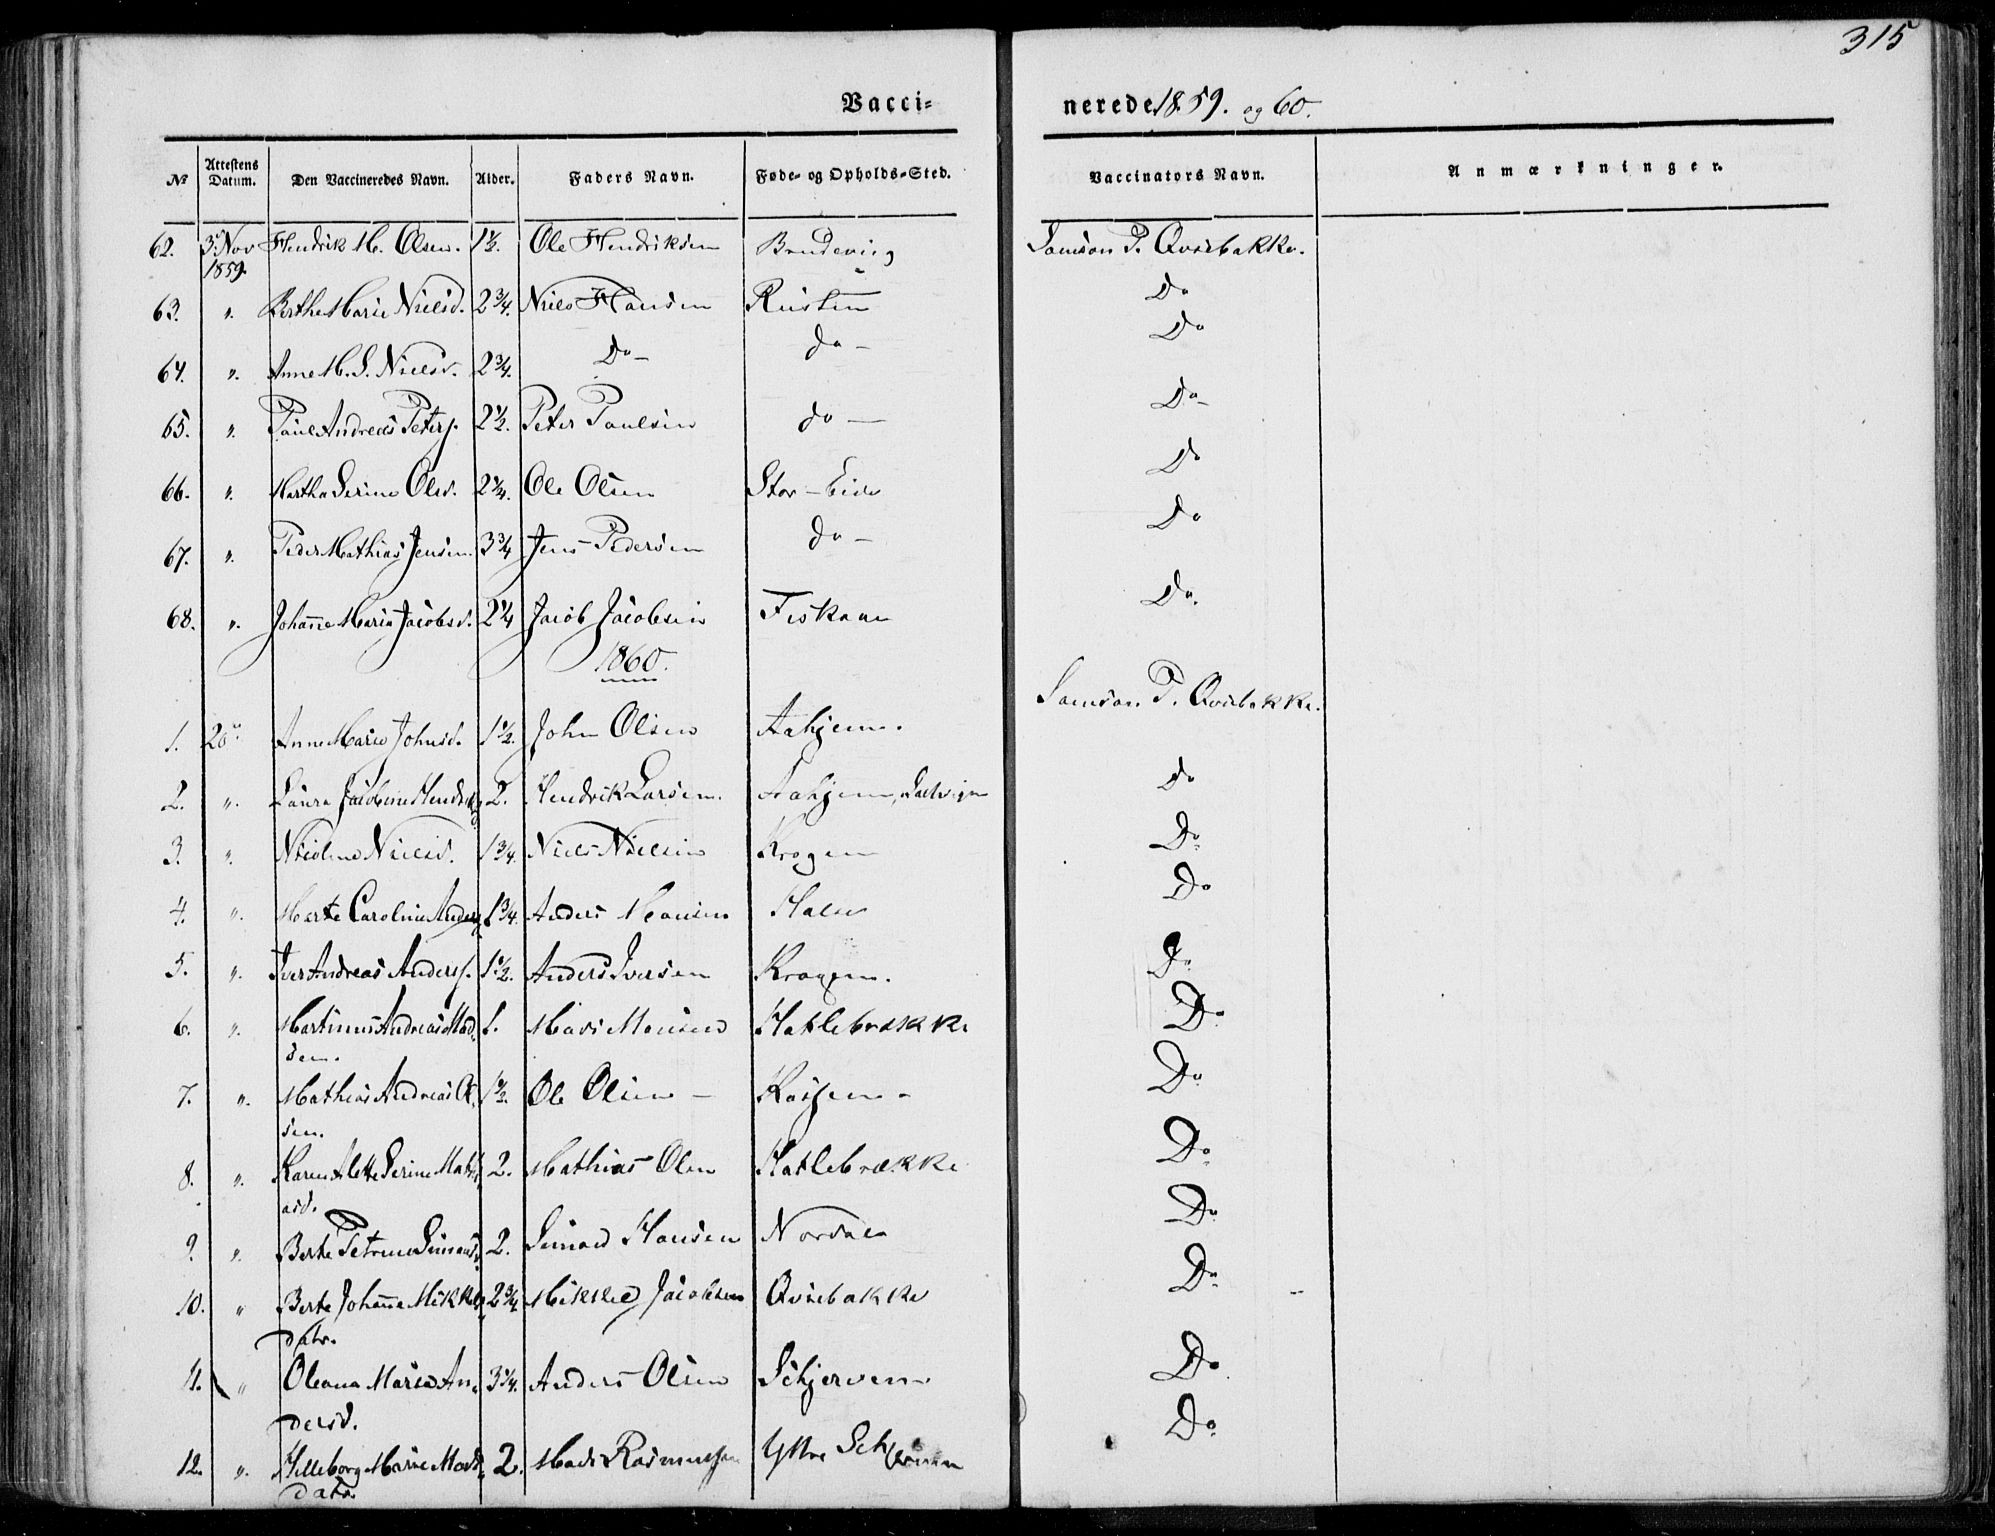 315
Vacci-
nerede 1859. og 60.
№ Attestens Datum. Den Vaccineredes Navn. Alder. Faders Navn. Føde- og Opholds-Sted. Vaccinators Navn. Anmærkninger.
62. 3. Nov 1859. Hendrik M. Olsen. 1½. Ole Hendriksen Brudevig Samson P. Qvibakke.
63. ". Berthe Marie Nielsd. 2¾. Niels Hansen Rusten Do
64. ". Anne M. S. Nielsd. 2¾. Do - do - Do
65. ". Paul Andreas Peters. 2½. Peter Paulsen do - Do -
66. ". Martha Serine Olsd. Ole Olsen Stor-Eide Do
67. ". Peder Mathias Jensen 3¾ Jens Pedersen do - Do
68. ". Johanne Maria Jacobsd. 2¼ Jacob Jacobsen Fiskaae Do.
1860.
1. Anne Marie Johnsd. 1½. John Olsen Aahjem. Samson P. Qvibakke.
2. ". Laura Jacobine Hendriksd. 2. Hendrik Larsen. Aahjem, Do
3. ". Nicoline Nielsd. 1¾. Niels Nielsen Krogen Do.
4. ". Marte Caroline Andersd. 1¾. Anders Monsen Do
5. ". Iver Andreas Anders. 1½. Anders Iversen Kragen. Do
6. ". Martinus Andreas Mad-
sen. 1. Mads Monsen Hatlebrække Do.
7. ". Mathias Andreas Ol-
sen. 1½. Ole Olsen - Do
8. ". Karen Alette Serine Mathi-
asd. 2. Mathias Olsen Hatlebrække Do.
9. ". Berte Petrine Simonsd. 2. Simon Hansen Nordal Do
10. " Berte Johanne Mikkels-
datr. 2¾. Mikkel Jacobsen Qvibakke Do.
11. " Oleana Maria An-
dersd. 3¼. Anders Olsen Schjerven Do
12. ". Hilleborg Marie Mads-
datr. 2. Mads Rasmussen Yttre Schjerven Do.